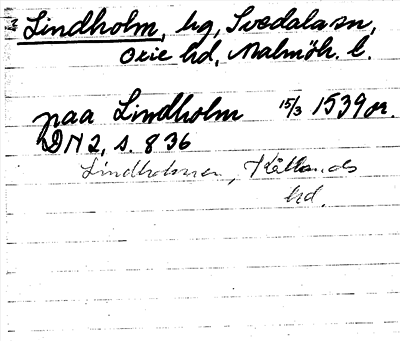 Lindholm, hg, Svedala sn,
Oxie hd, Malmöh. l.
paa Lindholm 15/3 1539 or.
DN 2, s. 836
Lindholmen, Kållands
hd.